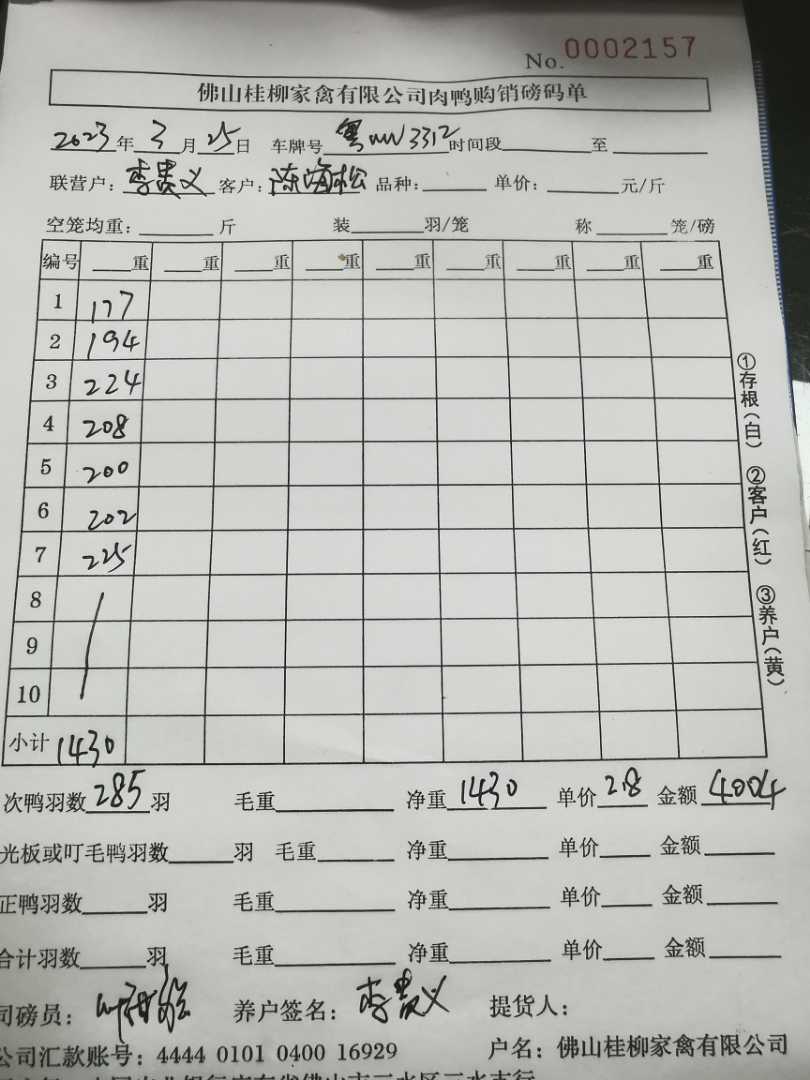 No. 0002157
佛山桂柳家禽有限公司肉鸭购销磅码单
2023年3月25日 车牌号 粤 3312 时间段 至
联营户：李贵义 客户：陈海松 品种： 单价： 元/斤
空笼均重： 斤 装 羽/笼 称 笼/磅
编号 重 重 重 重 重 重 重 重 重
1 177
2 194
3 224
4 208
5 200
6 202
7 225
8
9
10
小计 1430
①存根（白） ②客户（红） ③养户（黄）
次鸭羽数 285 羽 毛重 净重 1430 单价 2.8 金额 4004
光板或叮毛鸭羽数 羽 毛重 净重 单价 金额
正鸭羽数 羽 毛重 净重 单价 金额
合计羽数 羽 毛重 净重 单价 金额
司磅员： 养户签名：李贵义 提货人：
公司汇款账号：4444 0101 0400 16929 户名：佛山桂柳家禽有限公司